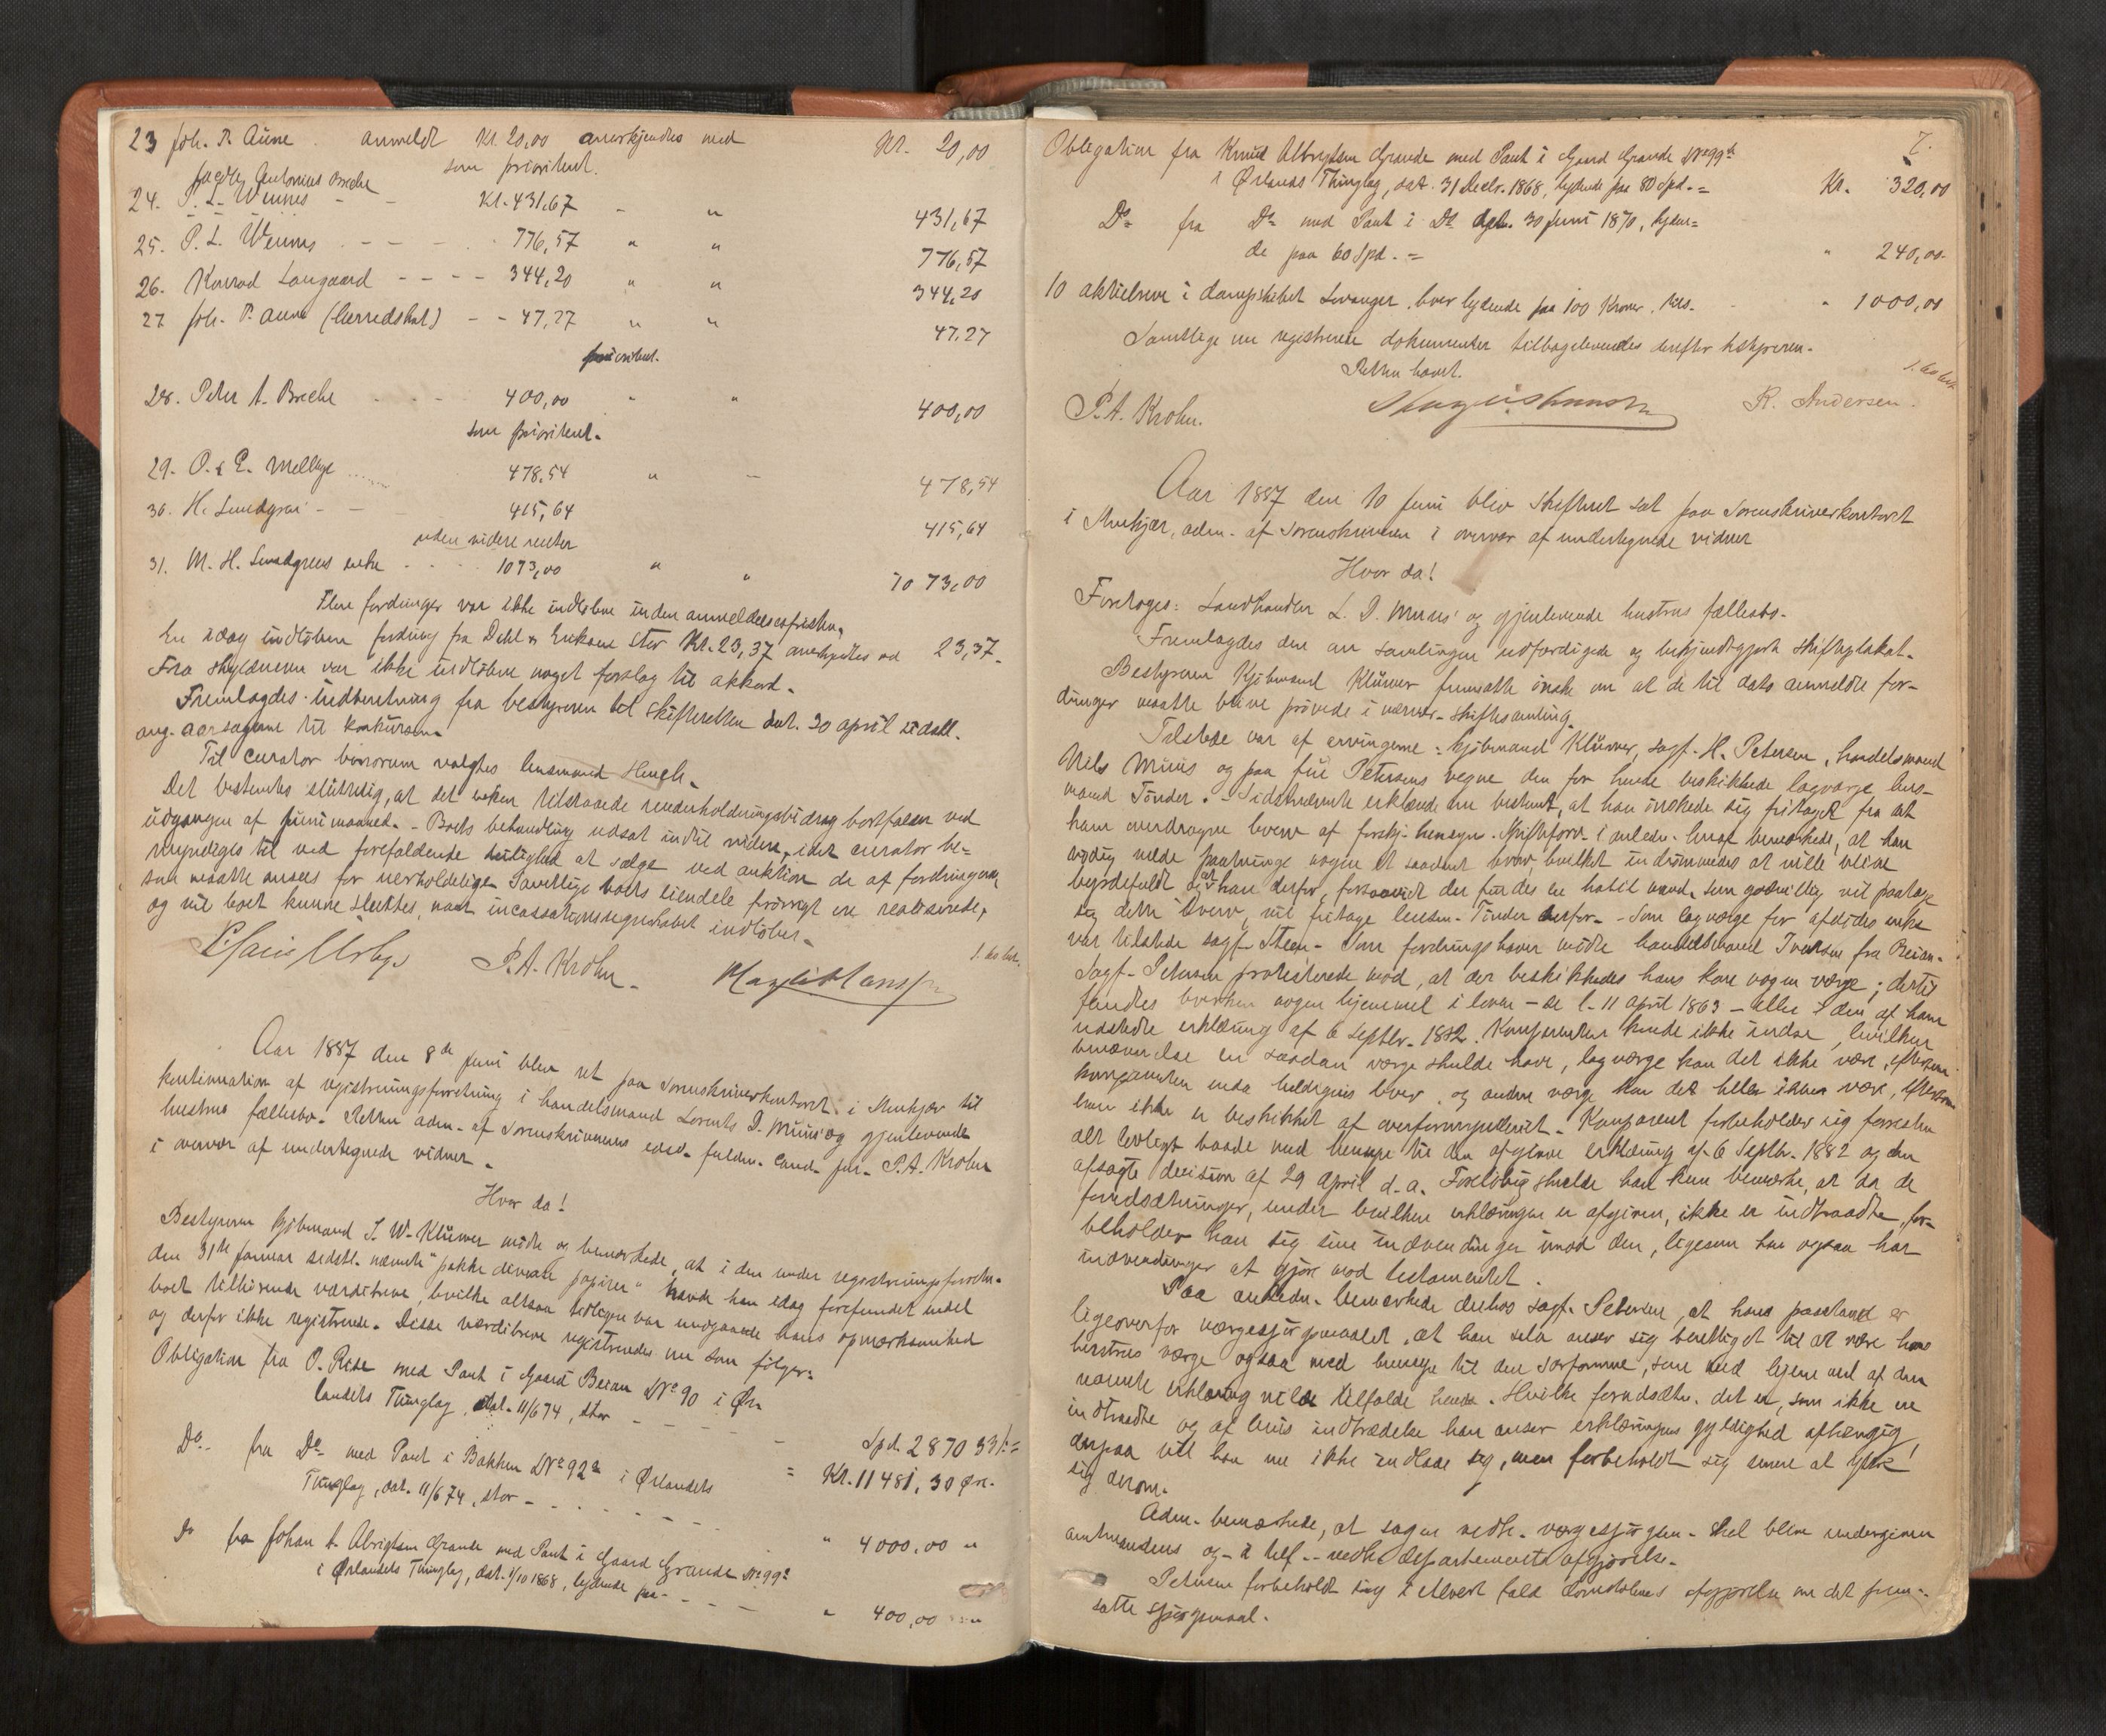 23 Joh. P. Aune . anmeldt Kr. 20,00 anerkjendtes med Kr. 20,00
som prioritert.
24. P. L. Weums - - Kr. 431,67 - " 431,67
25. P. L. Weums . - - - . . 776,57 " " 776,57
26. Konrad Langaard - - - - 344,20 " " 344,20
27 Joh. P. Aune (herredskat) - - 47,27 " " 47.27
prioritert.
28. Peter A. Brekke - - - 400,00 " " 400,00
som prioritert.
29. O. & E. Mellbye ..... 478,54 " - 478,54
30. H. Lundgren - - 415,64 415,64
uden videre renter
31. M. H. Lundgrens enke - - - - 1073,00 " " 1073,00
Flere fordringer var ikke indkomne inden anmeldelsesfristen.
En idag indløben fordring fra Dehl & Eriksen stor Kr. 23,37 anerkjendtes med 23,37.
Fra skyldneren var ikke indløbne noget forslag til akkord.
Fremlagdes indberetning fra bestyreren til skifteretten dat. 30 april sidstl.
ang. aarsagerne til konkursen.
Til curator bonorum valgtes lensmand
Det bestemtes slutelig, at det enken tilstaaede underholdningsbidrag bortfalder ved
udgangen af juni maaned. - Boets behandling udsat indtil videre, idet curator be-
myndiges til ved forefaldende leilighed at sælge ved auktion de af fordringerne
som maatte ansees for uerholdelige. Samtlige boets eiendele forøvrigt ere realiserede,
og vil boet kunne sluttes, naar incassationsregnskabet indløber.
P. A. Krohn.
Aar 1887 den 8de juni blev ret paa sorenskriverkontoret i Stenkjær til
kontinuation af registreringsforretning i handelsmand Lorents D. Muus' og gjenlevende
hustrus fællesbo. Retten adm. af sorenskriverens edsv. fuldm. cand. jur. P. A. Krohn
i overvær af undertegnede vidner.
Hvor da!
Bestyreren kjøbmand I. W. Klüwer mødte og bemærkede, at i den under registreringsforretn.
den 31te januar sidstl. nævnte "pakke diverse papirer" havde han idag forefundet endel
boet tilhørende værdibreve, hvilke altsaa tidligere var undgaaede hans opmærksomhed
og derfor ikke registrerede. Disse værdibreve registreredes nu som følger:
Obligation fra O. Risa med Pant i Gaard Beian No 90 i Ør-
landets Thinglag, dat. 11/6 74, stor - - - - Spd. 2870 33 /: =
= Kr. 11481,30 Øre.
Do. fra Do med Pant i Bakken No 92a i Ørlandets
Thinglag, dat. 11/6 74, stor - . . . - - - " 4000,00 "
Do fra Johan A. Albrigtsen Grande med Pant i Gaard Grande No 99a
i Ørlandets Thinglag, dat. 1/10 1868, lydende paa - - - - " 400,00 "
7.
Obligation fra Knud Albrigtsen Grande med Pant i Gaard Grande No 99b
i Ørlands Thinglag, dat. 31 Decbr. 1868, lydende paa 80 Spd. = Kr. 320,00
Do fra Do med Pant i Do dat. 30 juni 1870, lyden-
de paa 60 Spd. = " 240,00.
10 aktiebreve i dampskibet Levanger, hver lydende paa 100 Kroner, " 1000,00
Samtlige nu registrerede dokumenter tilbageleveredes derefter bestyreren.
Retten hævet.
P. A. Krohn. R. Andersen.
Aar 1887 den 10 juni blev skifteret sat paa sorenskriverkontoret
i Stenkjær, adm. af sorenskriveren i overvær af undertegnede vidner
Hvor da!
Foretoges: Landhandler L. D. Muus' og gjenlevende hustrus fællesbo.
Fremlagdes den om samlingen udfærdigede og bekjendtgjorte skifteplakat.
Bestyreren Kjøbmand Klüwer fremsatte ønske om at de til dato anmeldte for-
dringer maatte blive prøvede i nærvær. skiftesamling.
Tilstede var af arvingerne: kjøbmand Klüwer, sagf. H. Petersen, handelsmand
Nils Muus og paa fru Petersens vegne den for hende beskikkede lagværge, lens-
mand Tønder. - Sidstnævnte erklærede nu bestemt, at han ønskede sig fritaget fra det
ham overdragne hverv af forskj. hensyn. Skifteforv. i anledn. heraf bemærkede, at han
nødig vilde paatvinge nogen et saadant hverv, hvilket indrømmedes at ville blive
byrdefuldt og at han derfor, forsaavidt der findes en habil mand, som godvillig vil paatage
sig dette hverv, vil fritage lensm. Tønder derfor. - Som lagværge for afdødes enke
var tilstede sagf. Steen. Som fordringshaver mødte handelsmand Iversen fra Beian.
Sagf. Petersen protesterede mod, at der beskikkedes hans kone nogen værge; dertil
fandtes hverken nogen hjemmel i loven - se l. 11 april 1863 - eller i den af ham
udstedte erklæring af 6 Septbr. 1882. Komparenten kunde ikke indse, hvilken
benævnelse en saadan værge skulde have, lagværge kan det ikke være, eftersom
komparenten endu heldigvis lever, og anden værge kan det heller ikke være, eftersom
hun ikke er beskikket af overformynderiet. Komparent forbeholder sig forresten
alt lovligt baade med hensyn til den afgivne erklæring af 6 Septbr. 1882 og den
afsagte decision af 29 april d. a. Foreløbig skulde han kun bemærke, at da de
forudsætninger, under hvilke erklæringen er afgiven, ikke er indtraadte, for-
beholder han sig sine indvendinger imod den, ligesom han ogsaa har
indvendinger at gjøre mod testamentet.
Paa anledn. bemærkede derhos sagf. Petersen, at hans paastand er
ligeoverfor værgespørgsmaalet, at han selv anser sig berettiget til at være hans
hustrus værge ogsaa med hensyn til den særformue, som ved hjem mel af den
nævnte erklæring vilde tilfalde hende. Hvilke forudsætn. det er, som ikke ere
indtraadte og af hvis indtrædelse han anser erklæringens gyldighed afhængig,
derpaa vil han nu ikke indlade sig, men forbeholdt sig senere at ytre
sig derom.
Adm. bemærkede, at sagen vedk. værgespørgsm. skal blive undergiven
amtmandens og i tilf. vedk. departements afgjørelse.
Petersen forbeholdt sig i ethvert fald domstolenes afgjørelse om det frem-
satte spørgsmaal.